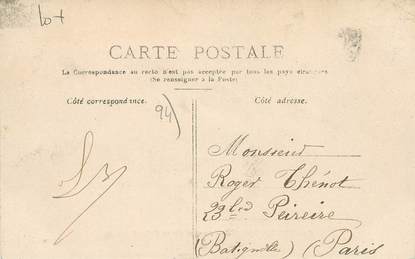 lot
CARTE POSTALE
La Correspondance au recto n'est pas acceptée par tous les pays étrangers
(Se renseigner à la Poste)
Côté correspondance.
Côté adresse.
94)
Monsieur
Roger Thénot
23 bd Peireire
(Batignolles) (Paris